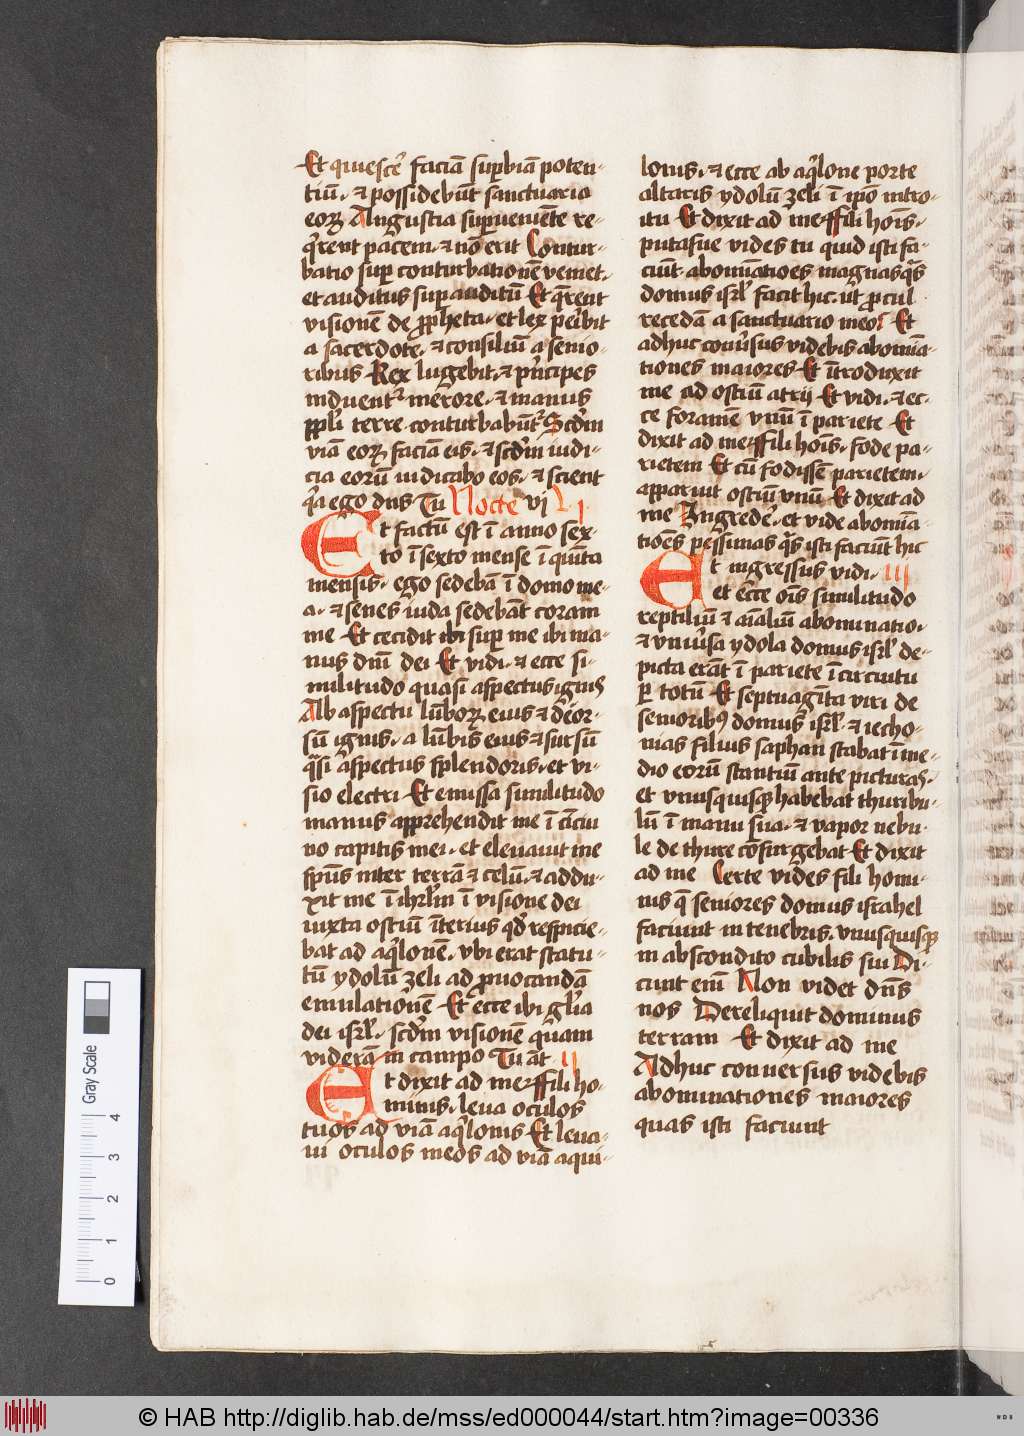 Et quiesce᷑ faciā sup̱biā poten-
tiū. ⁊ possidebūt sanctuaria
eoꝝ Angustia sup̱ueniēte re-
q̄rent pacem. ⁊ nō erit Contur-
batio sup̱ conturbationē veniet.
et auditus sup̱ auditū Et q̄rent
visionē de ꝓpheta. et lex peribit
a sacerdote. ⁊ consiliū a senio-
ribus Rex lugebit. ⁊ pͥncipes
induent᷑ merore. ⁊ manus
ppl̄i terre conturbabūt᷑ Scd̄m
viā eoꝝ faciā eis. ⁊ scd̄m iudi-
cia eorū iudicabo eos. ⁊ scient
qͥa ego dn̄s Tu Nocte vj L I
Et factū est ī anno sex-
to ī sexto mense ī quīta
mensis. ego sedebā ī domo me-
a. ⁊ senes iuda sedebāt coram
me Et cecidit ibi sup̱ me ibi ma-
nus dn̄i dei Et vidi. ⁊ ecce si-
militudo quasi aspectus ignis
Ab aspectu lūboꝝ eius ⁊ deor-
sū ignis. a lūbis eius ⁊ sursū
qͣsi aspectus splendoris. et vi-
sio electri Et emissa similitudo
manus apprehendit me ī cīcin
no capitis mei. et eleuauit me
sp̄us inter terrā ⁊ celū. ⁊ addu-
xit me ī ihrl̄m ī visione dei
iuxta ostiū īterius qd̄ respicie-
bat ad aqͥlonē. vbi erat statu-
tū ydolū zeli ad ꝓuocandā
emulationē Et ecce ibi gl̄ia
dei isrl̄. scd̄m visionē quam
viderā in campo Tu āt II
Et dixit ad me fili ho-
minis. leua oculos
tuos ad viā aqͥlonis Et leua-
ui oculos meos ad viā aqui-
lonis. ⁊ ecce ab aqͥlone porte
altaris ydolū zeli ī ip̄o intro-
itu Et dixit ad me fili hoīs.
putasne vides tu quid isti fa-
ciūt. abomīatōes magnas qͣs
domus isrl̄ facit hic. ut ꝓcul
recedā a sanctuario meo Et
adhuc conūsus videbis abomīa-
tiones maiores Et ītroduxit
me ad ostiū atrij Et vidi. ⁊ ec-
ce foramē vnū ī pariete Et
dixit ad me fili hoīs. fode pa-
rietem Et cū fodissē parietem.
apparuit ostiū vnū Et dixit ad
me Ingrede᷑. et vide abomīa-
tiōes pessimas qͣs isti faciūt hic
Et ingressus vidi. III
et ecce oīs similitudo
reptiliū ⁊ aīaliū abominatio.
⁊ vniūsa ydola domus isrl̄ de-
picta erāt ī pariete ī circuitu
ꝑ totū Et septuagīta viri de
senioribꝯ domus isrl̄ ⁊ iecho-
nias filius saphan stabat ī me-
dio eorū stantiū ante picturas.
et vnusquisqꝫ habebat thuribu-
lū ī manu sua. ⁊ vapor nebu-
le de thure cōsurgebat Et dixit
ad me Certe vides fili homi-
nis q̄ seniores domus israhel
faciunt in tenebris. vnusquisqꝫ
in abscondito cubilis sui Di-
cunt enī Non videt dn̄s
nos Dereliquit dominus
terram Et dixit ad me
Adhuc conuersus videbis
abominationes maiores
quas isti faciunt
Gray Scale
0 1 2 3 4
© HAB http://diglib.hab.de/mss/ed000044/start.htm?image=00336